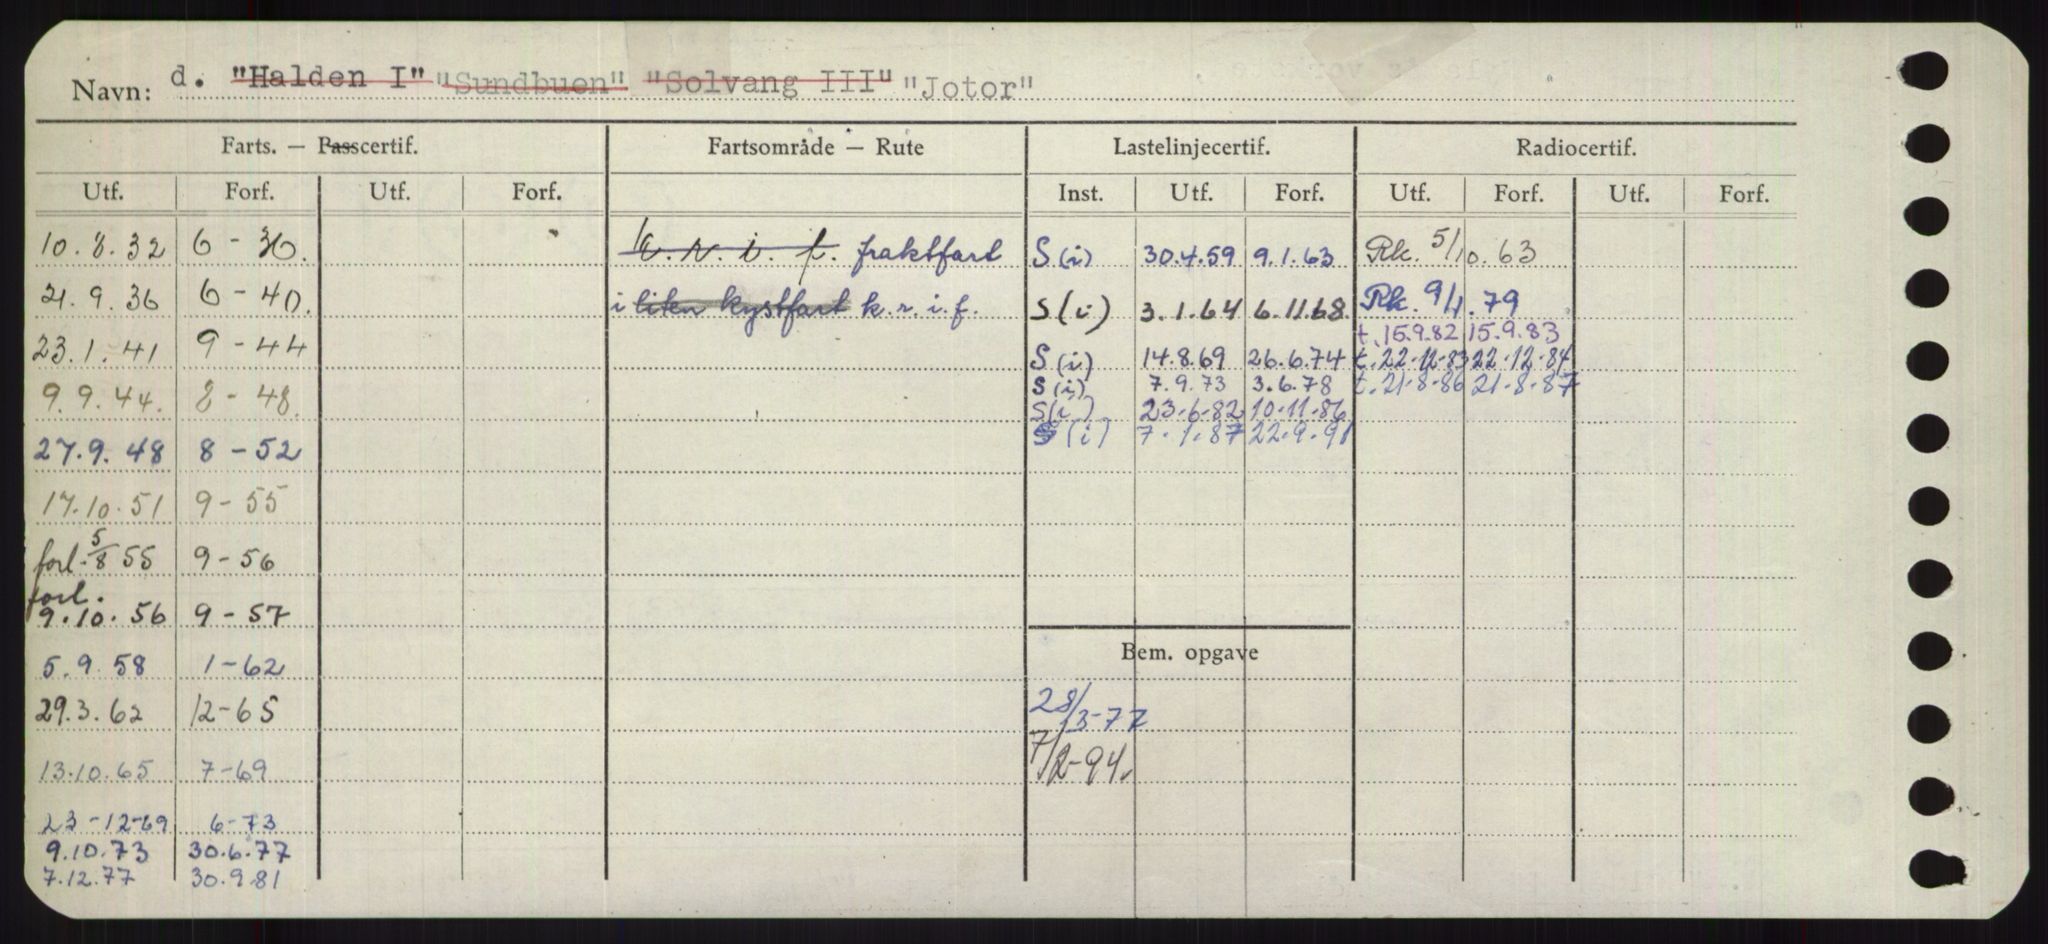 Navn: d. "Halden I" "Sundbuen" "Solvang III" "Jotor"
Farts. — Passcertif. Fartsområde — Rute Lastelinjecertif. Radiocertif.
Utf. Forf. Utf. Forf. Inst. Utf. Forf. Utf. Forf. Utf. Forf.
10.8.32 6 - 36. k. r. i. f. fraktfart S (i) 30.4.59 9.1.63 Rk. 5/10.63
21.9.36 6 - 40. i liten kystfart k. r. i. f. S (i) 3.1.64 6.11.68 Rk. 9/1.79
t. 15.9.82 15.9.83
23.1.41 9 - 44 S (i) 14.8.69 26.6.74 t. 22.12.83 22.12.84
S (i) 7.9.73 3.6.78 t. 21-8-86 21-8-87
9.9.44. 8 - 48. S (i) 23-6-82 10-11-86
27.9.48 8 - 52 S (i) 7.1.87 22.9.91
17.10.51 9 - 55
forl. 5/8 55 9 - 56
forl.
9.10.56 9 - 57
Bem. opgave
5.9.58 1 - 62
29.3.62 12-65 28/3-77
13.10.65 7-69 7/2-94.
23-12-69 6-73
9.10.73 30.6.77
7.12.77 30.9.81